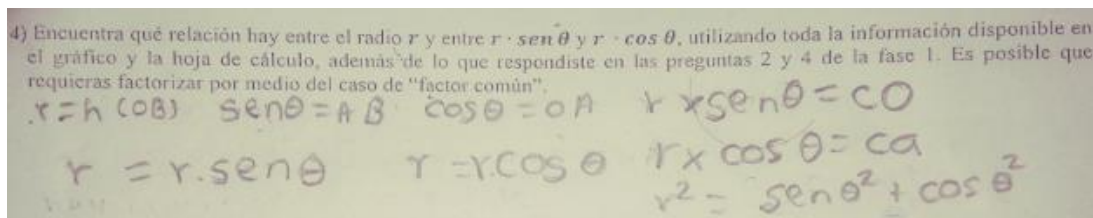 4) Encuentra qué relación hay entre el radio r y entre r · sen θ y r · cos θ, utilizando toda la información disponible en
el gráfico y la hoja de cálculo, además de lo que respondiste en las preguntas 2 y 4 de la fase 1. Es posible que
requieras factorizar por medio del caso de "factor común".
r=h (OB) senθ = AB cosθ = OA r x senθ = CO
r = r.senθ r = r.cos θ r x cos θ = ca
r² = senθ² + cos θ²